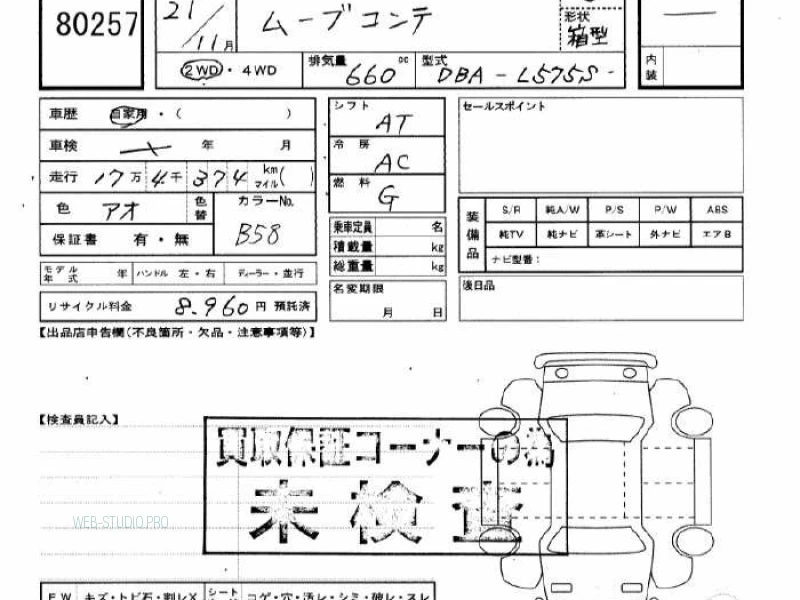 80257
21/11月
ムーブコンテ
形状
箱型
2WD・4WD
排気量 660 DC
型式 DBA - L575S -
内装
車歴 自家用・( )
車検 年 月
走行 17万 4千 374 km マイル( )
色 アオ 色替
カラーNo. B58
保証書 有・無
モデル年式 年 ハンドル 左・右 ディーラー・並行
リサイクル料金 8.960 円 預託済
シフト AT
冷房 AC
燃料 G
乗車定員 名
積載量 kg
総重量 kg
名変期限
月 日
セールスポイント
装備品
S/R 純A/W P/S P/W ABS
純TV 純ナビ 革シート 外ナビ エアB
ナビ型番:
後日品
【出品店申告欄(不良箇所・欠品・注意事項等)】
【検査員記入】
買取保証コーナーの為
未検査
WEB-STUDIO.PRO
E W キズ・トビ石・割レX シート コゲ・穴・汚レ・シミ・破レ・スレ